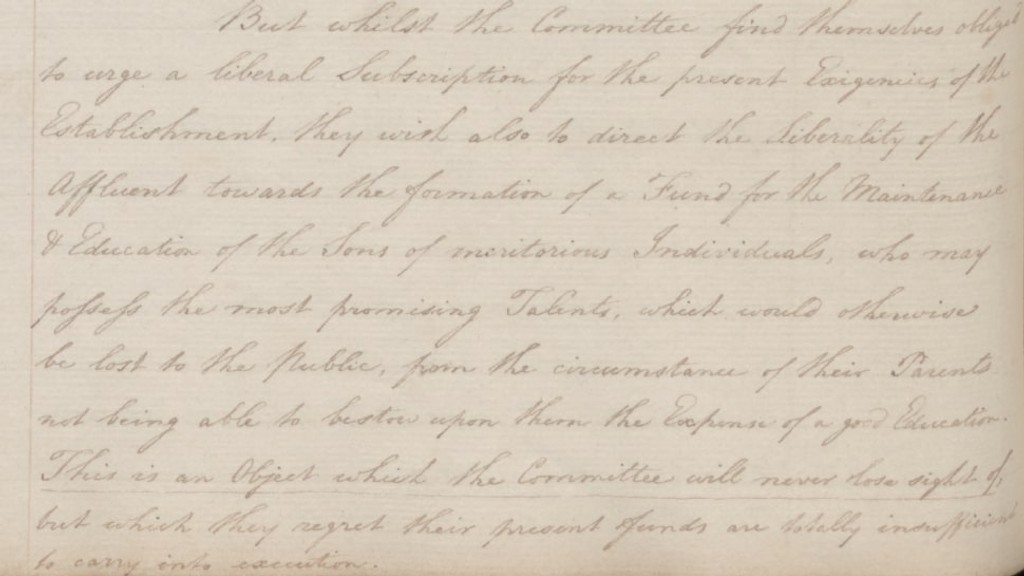 But whilst the Committee find themselves obliged
to urge a liberal Subscription for the present Exigencies of the
Establishment, they wish also to direct the Liberality of the
Affluent towards the formation of a Fund for the Maintenance
& Education of the Sons of meritorious Individuals, who may
possess the most promising Talents, which would otherwise
be lost to the Public, from the circumstance of their Parents
not being able to bestow upon them the Expense of a good Education.
This is an Object which the Committee will never lose sight of,
but which they regret their present funds are totally insufficient
to carry into execution.